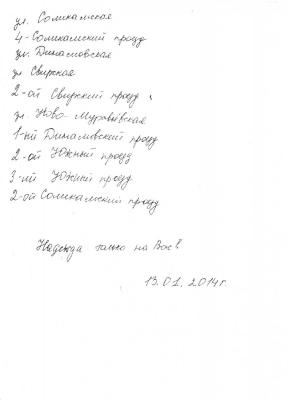 ул. Соликамская
4-Соликамский проезд
ул. Динамовская
ул. Свирская
2-ой Свирский проезд
ул. Ново-Муравьёвская
1-ый Динамовский проезд
2-ой Южный проезд
3-ий Южный проезд
2-ой Соликамский проезд
Надежда только на Вас
13.01.2014г.